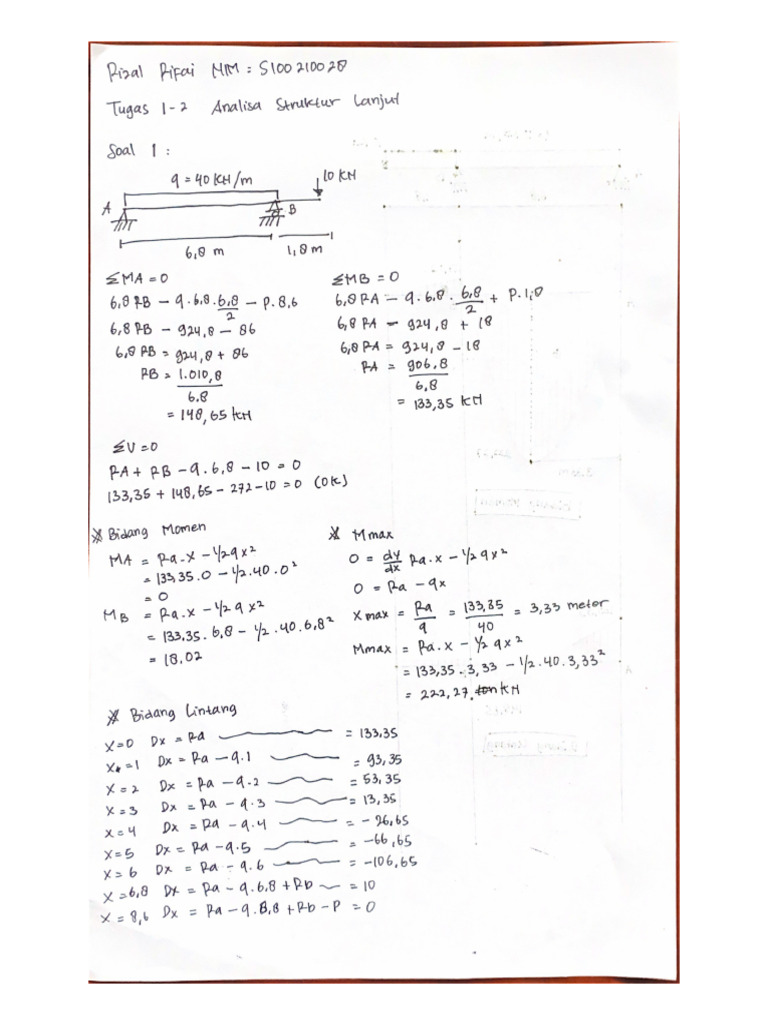 Rizal Rifai NIM : S100210028
Tugas 1-2 Analisa Struktur Lanjut
Soal 1 :
q = 40 KN/m
10 KN
A
B
6,8 m
1,8 m
ΣMA = 0
6,8 RB - q.6,8.6,8/2 - P.8,6
6,8 RB - 924,8 - 86
6,8 RB = 924,8 + 86
RB = 1.010,8/6.8
= 148,65 KN
ΣMB = 0
6,8 RA - q.6,8.6,8/2 + P.1,8
6,8 RA - 924,8 + 18
6,8 RA = 924,8 - 18
RA = 906,8/6,8
= 133,35 KN
ΣV = 0
RA + RB - q.6,8 - 10 = 0
133,35 + 148,65 - 272 - 10 = 0 (OK)
* Bidang Momen
MA = Ra.x - 1/2 q x²
= 133,35.0 - 1/2.40.0²
= 0
MB = Ra.x - 1/2 q x²
= 133,35.6,8 - 1/2.40.6,8²
= 18,02
* Mmax
0 = dy/dx Ra.x - 1/2 q x²
0 = Ra - qx
Xmax = Ra/q = 133,35/40 = 3,33 meter
Mmax = Ra.x - 1/2 q x²
= 133,35.3,33 - 1/2.40.3,33²
= 222,27 KN
* Bidang Lintang
x=0 Dx = Ra = 133,35
x=1 Dx = Ra - q.1 = 93,35
x=2 Dx = Ra - q.2 = 53,35
x=3 Dx = Ra - q.3 = 13,35
x=4 Dx = Ra - q.4 = -26,65
x=5 Dx = Ra - q.5 = -66,65
x=6 Dx = Ra - q.6 = -106,65
x=6,8 Dx = Ra - q.6,8 + Rb = 10
x=8,6 Dx = Ra - q.8,8 + Rb - P = 0